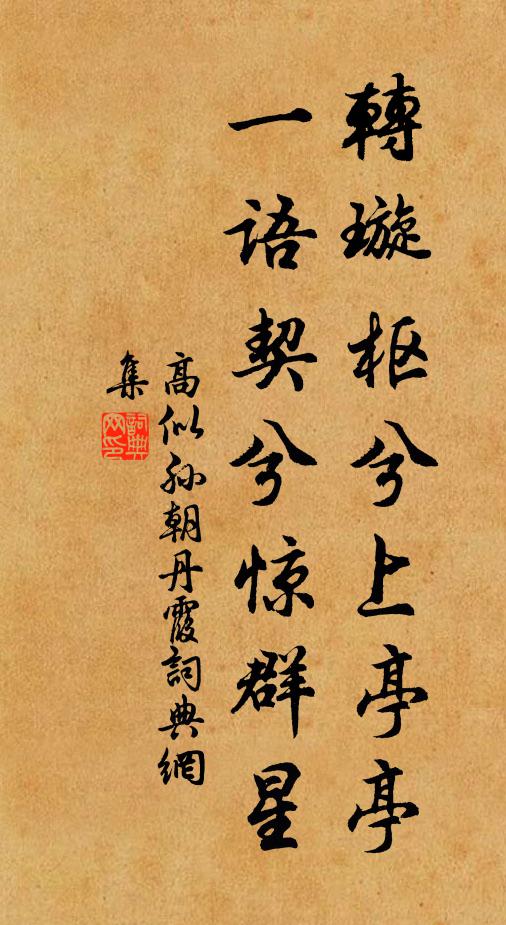 轉璇枢兮上亭亭
一语契兮惊群星
高似孙朝丹霞詞典網
集
詞典網印